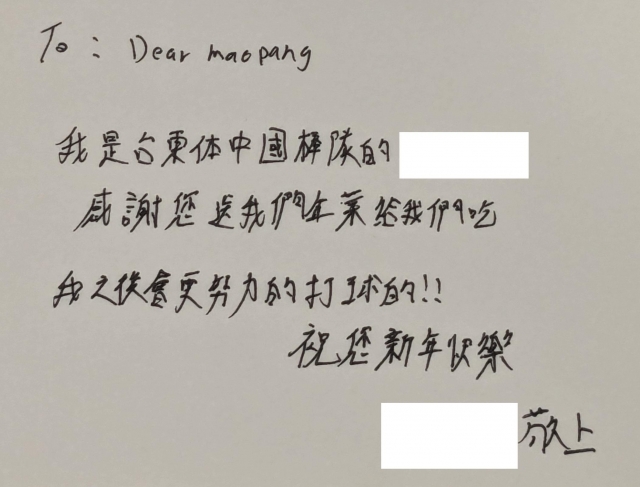 To : Dear maopang
我是台東体中國棒隊的
感謝您送我們年菜給我們吃
我之後會更努力的打球的!!
祝您新年快樂
敬上